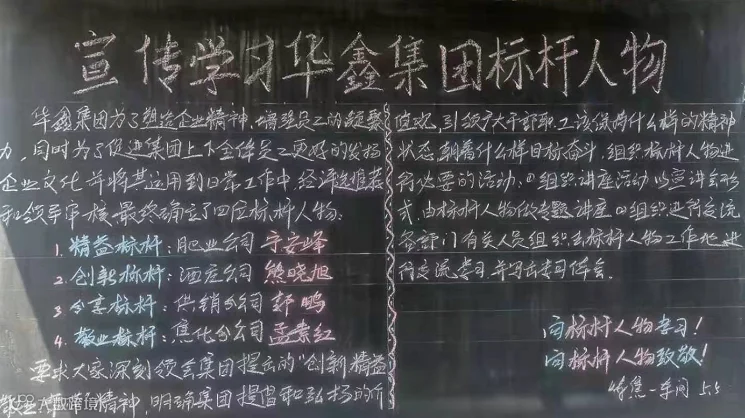 宣传学习华鑫集团标杆人物
华鑫集团为了塑造企业精神,增强员工的凝聚
力,同时为了促进集团上下全体员工更好的发扬
企业文化并将其运用到日常工作中,经评选推荐
和领导审核最终确立了四位标杆人物:
1. 精益标杆:肥业公司 宁安峰
2. 创新标杆:酒店公司 熊晓旭
3. 分享标杆:供销分公司 郭鹏
4. 敬业标杆:焦化分公司 孟素红
要求大家深刻领会集团提出的“创新精益
精神,明确集团提倡和弘扬的价
值观,引领广大干部职工该保持什么样的精神
状态,朝着什么样目标奋斗,组织标杆人物进
行必要的活动:①组织讲座活动以宣讲会形
式,由标杆人物做专题讲座②组织进行交流
各部门有关人员组织去标杆人物工作地进
行交流学习并写出学习体会.
向标杆人物学习!
向标杆人物致敬!
炼焦一车间 5.5